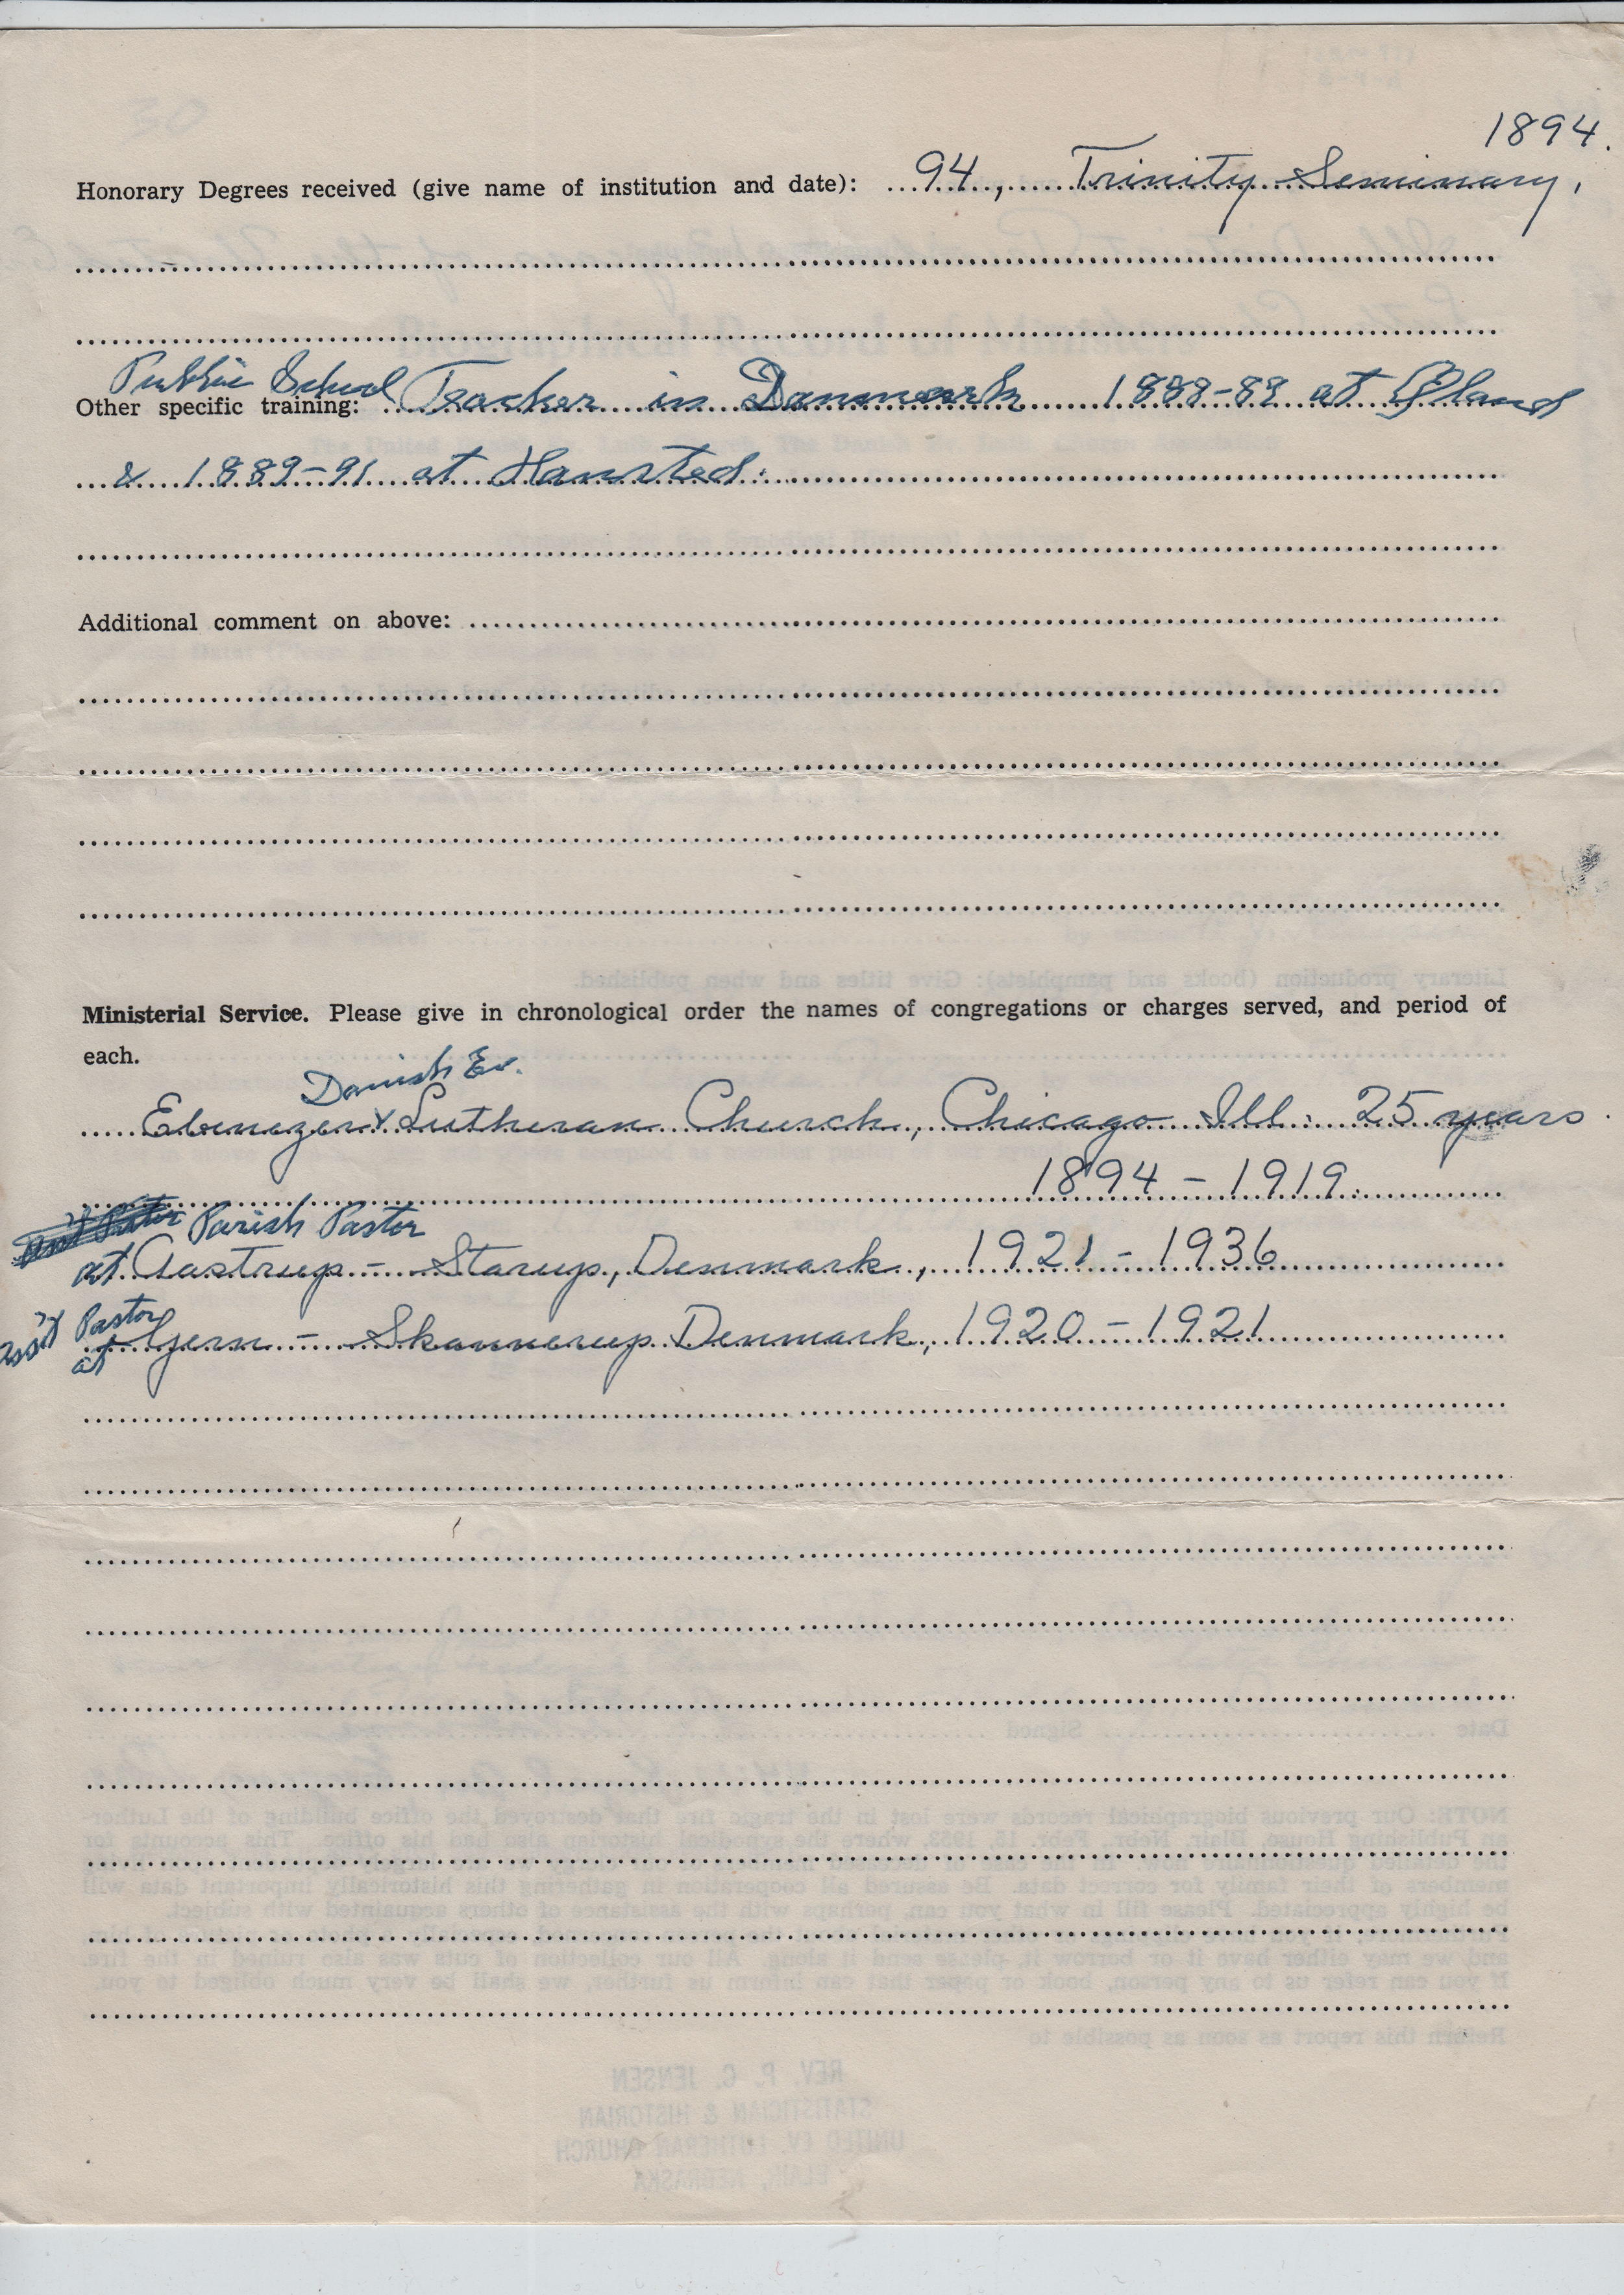 1894.
Honorary Degrees received (give name of institution and date): 94, Trinity Seminary,
Public School
Other specific training: Teacher in Danmark 1888-89 at Øland
& 1889-91 at Hansted.
Additional comment on above:
Ministerial Service. Please give in chronological order the names of congregations or charges served, and period of
each.
Danish Ev.
Ebenezer Lutheran Church, Chicago Ill. 25 years.
1894 - 1919.
Parish Pastor
at Aastrup - Starup, Denmark, 1921 - 1936
ass't Pastor
at Gjern - Skannerup Denmark, 1920 - 1921